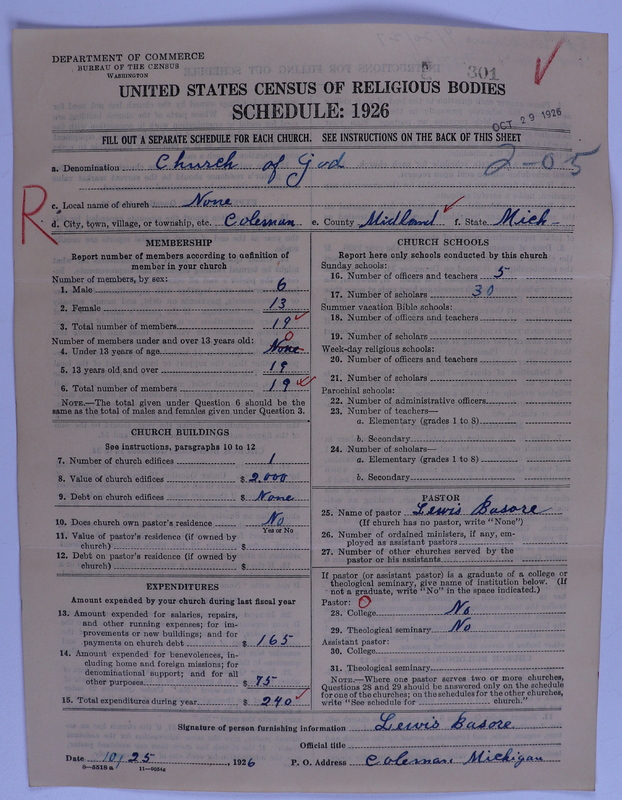 DEPARTMENT OF COMMERCE
BUREAU OF THE CENSUS
WASHINGTON
301
UNITED STATES CENSUS OF RELIGIOUS BODIES
SCHEDULE: 1926
OCT 29 1926
FILL OUT A SEPARATE SCHEDULE FOR EACH CHURCH. SEE INSTRUCTIONS ON THE BACK OF THIS SHEET
a. Denomination Church of God
2-05
R
c. Local name of church None
d. City, town, village, or township, etc. Coleman e. County Midland f. State Mich
MEMBERSHIP
Report number of members according to definition of
member in your church
Number of members, by sex:
1. Male 6
2. Female 13
3. Total number of members 19
Number of members under and over 13 years old: 0
4. Under 13 years of age None
5. 13 years old and over 19
6. Total number of members 19
NOTE.—The total given under Question 6 should be the
same as the total of males and females given under Question 3.
CHURCH BUILDINGS
See instructions, paragraphs 10 to 12
7. Number of church edifices 1
8. Value of church edifices $ 2.000
9. Debt on church edifices $ None
10. Does church own pastor's residence No
Yes or No
11. Value of pastor's residence (if owned by
church) $
12. Debt on pastor's residence (if owned by
church) $
EXPENDITURES
Amount expended by your church during last fiscal year
13. Amount expended for salaries, repairs,
and other running expenses; for im-
provements or new buildings; and for
payments on church debt $ 165
14. Amount expended for benevolences, in-
cluding home and foreign missions; for
denominational support; and for all
other purposes $ 75
15. Total expenditures during year $ 240
CHURCH SCHOOLS
Report here only schools conducted by this church
Sunday schools:
16. Number of officers and teachers 5
17. Number of scholars 30
Summer vacation Bible schools:
18. Number of officers and teachers
19. Number of scholars
Week-day religious schools:
20. Number of officers and teachers
21. Number of scholars
Parochial schools:
22. Number of administrative officers
23. Number of teachers—
a. Elementary (grades 1 to 8)
b. Secondary
24. Number of scholars—
a. Elementary (grades 1 to 8)
b. Secondary
PASTOR
25. Name of pastor Lewis Basore
(If church has no pastor, write "None")
26. Number of ordained ministers, if any, em-
ployed as assistant pastors
27. Number of other churches served by the
pastor or his assistants
If pastor (or assistant pastor) is a graduate of a college or
theological seminary, give name of institution below. (If
not a graduate, write "No" in the space indicated.)
Pastor: 0
28. College No
29. Theological seminary No
Assistant pastor:
30. College
31. Theological seminary
NOTE.—Where one pastor serves two or more churches,
Questions 28 and 29 should be answered only on the schedule
for one of the churches; on the schedules for the other churches,
write "See schedule for church."
Signature of person furnishing information Lewis Basore
Official title
Date 10/25, 1926 P. O. Address Coleman Michigan
8—5518a 11—9254a